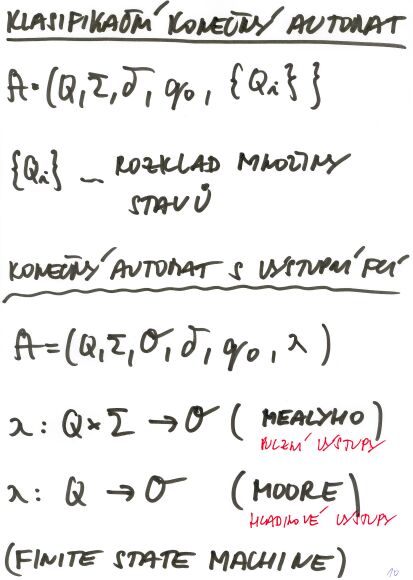 KLASIFIKAČNÍ KONEČNÝ AUTOMAT
A=(Q,Σ,δ,q₀,{Qᵢ}}
{Qᵢ} – ROZKLAD MNOŽINY
STAVŮ
KONEČNÝ AUTOMAT S VÝSTUPNÍ FCÍ
A=(Q,Σ,O,δ,q₀,λ)
λ: Q×Σ → O (MEALYHO)
PULZNÍ VÝSTUPY
λ: Q → O (MOORE)
HLADINOVÉ VÝSTUPY
(FINITE STATE MACHINE)
10